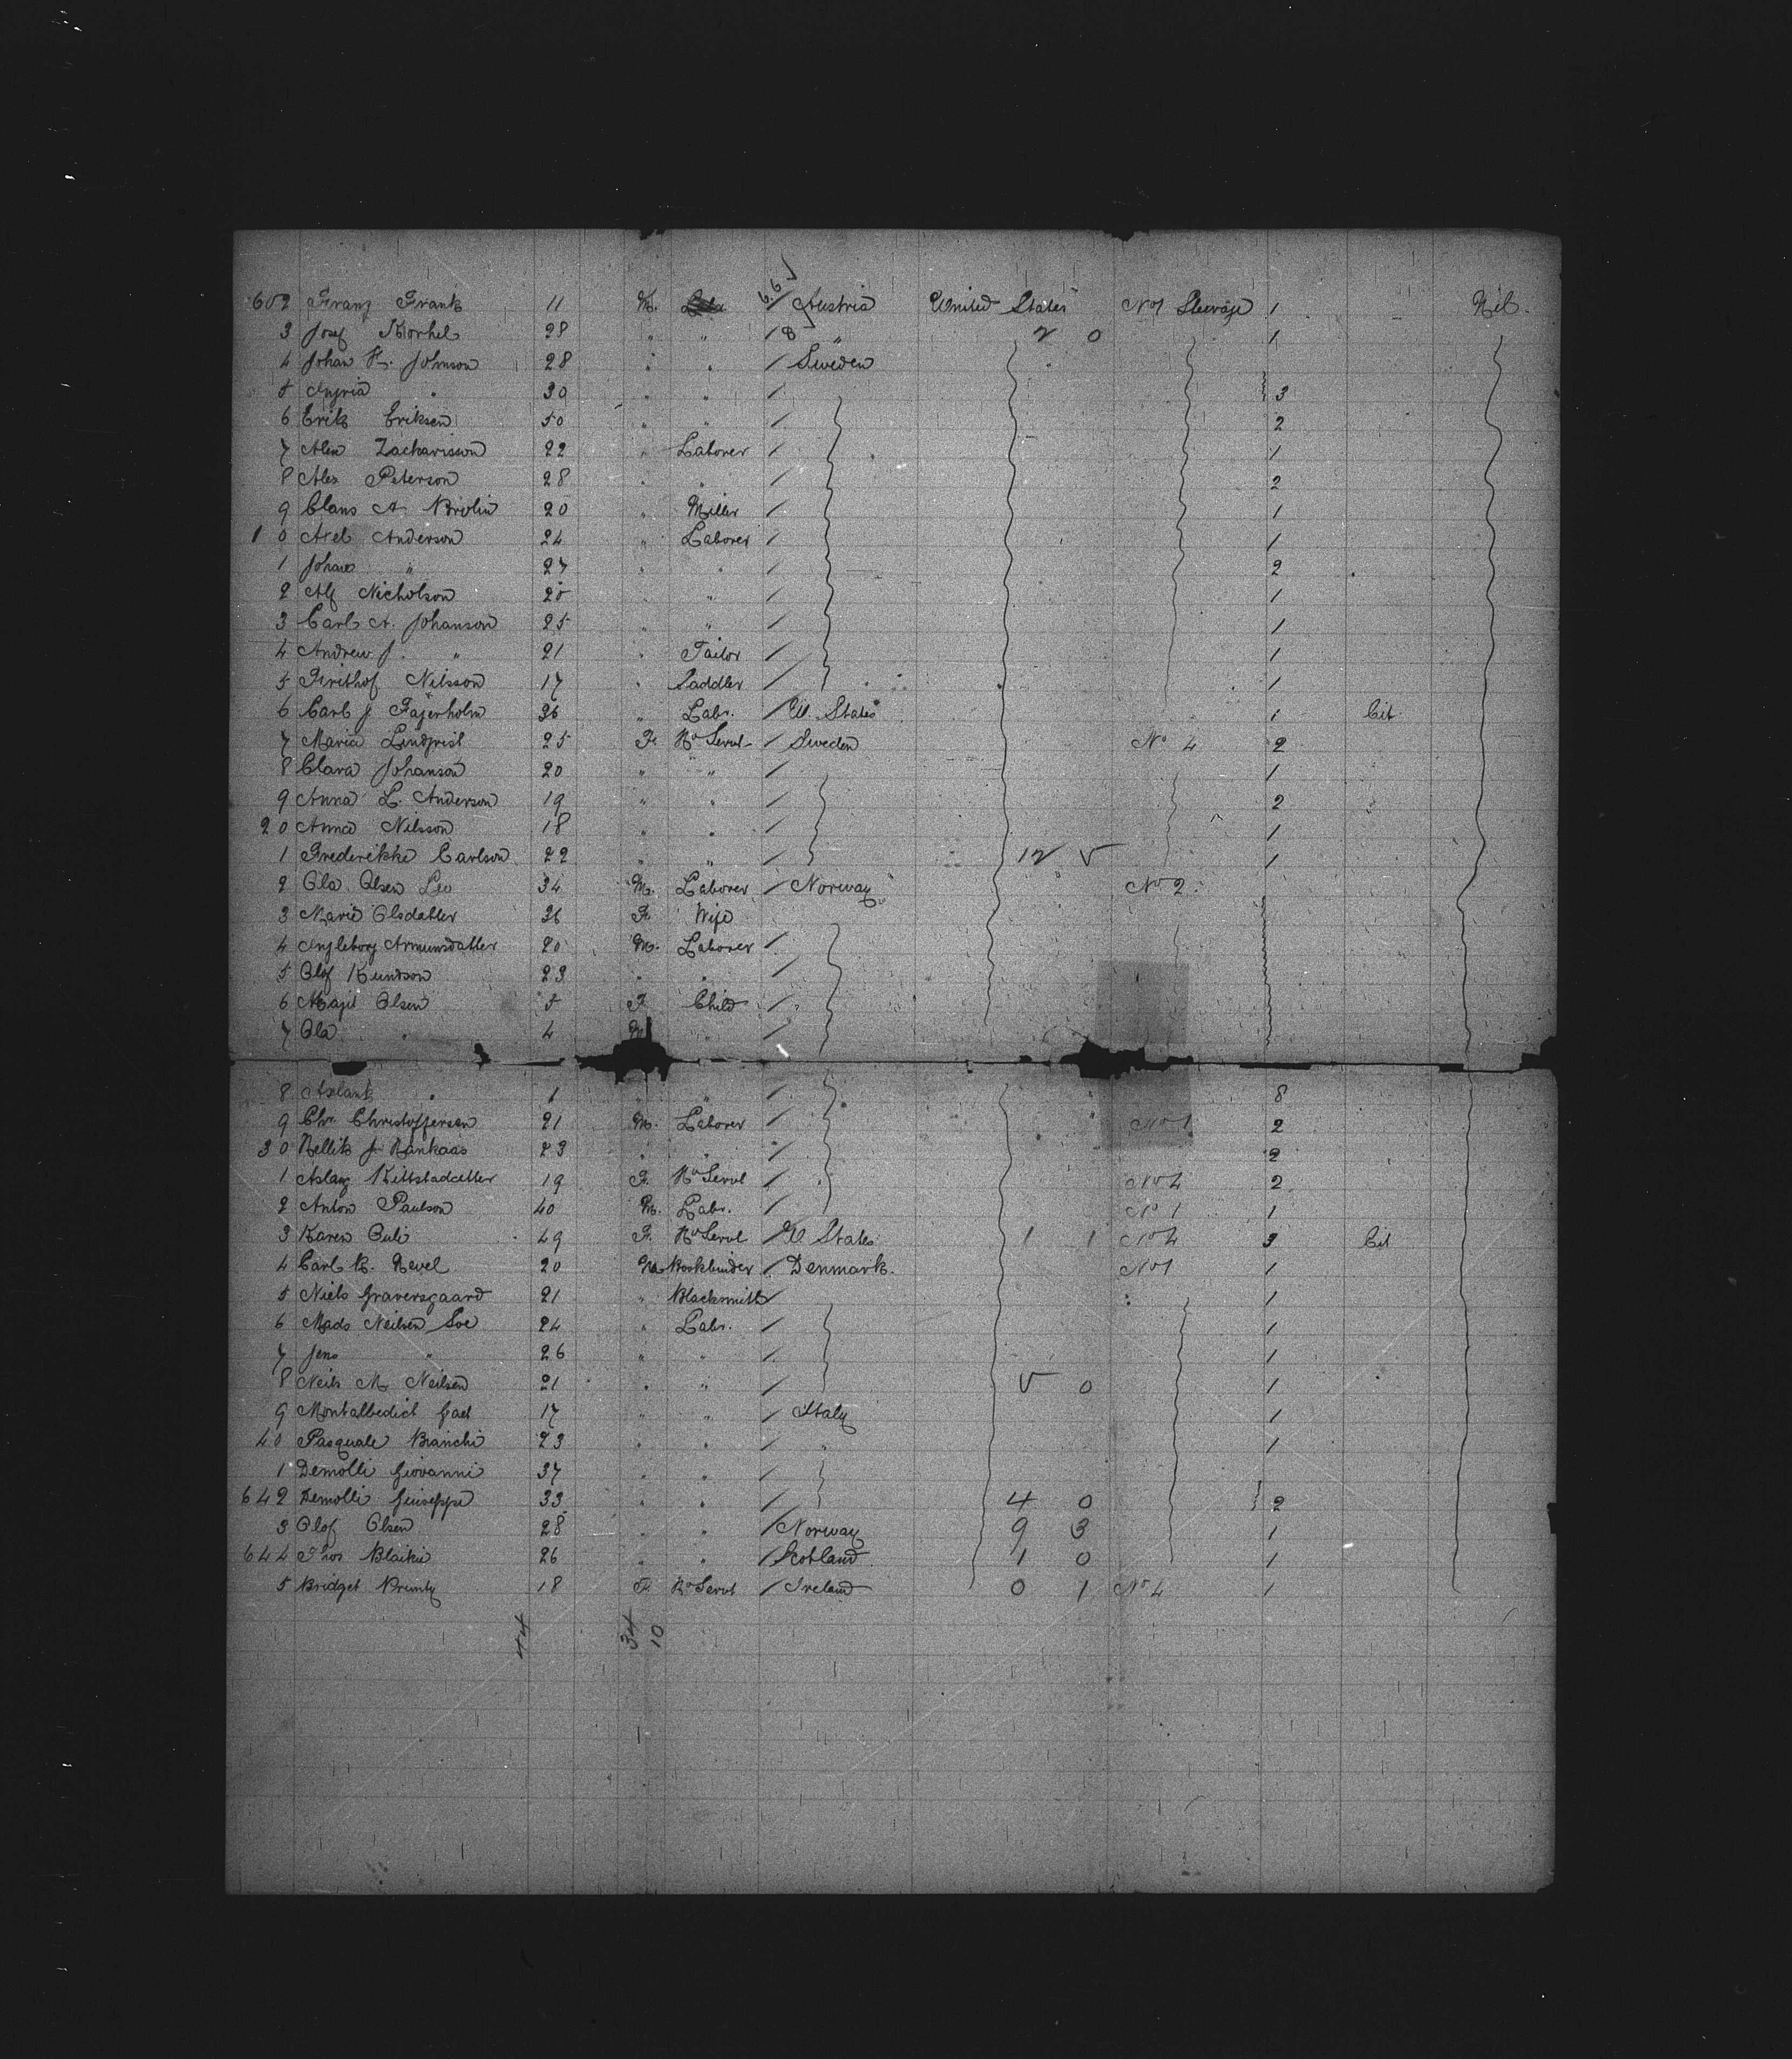 6 6 √
602 Franz Frank 11 M. / Austria United States No 1 Steerage 1 Nil.
3 Josef Korhel 28 " " / 8 " 2 0 1
4 Johan H. Johnson 28 " " / Sweden
5 " 30 " " / 3
6 Erik Eriksen 50 " " / 2
7 Zacharisson 22 " Laborer / 1
8 Alex Peterson 28 " " / 2
9 Claus A. Brolin 20 " Miller / 1
1 0 Axel Anderson 24 " Laborer / 1
1 Johan " 27 " " / 2
2 Alf Nicholson 20 " " / 1
3 Carl A. Johanson 25 " " / 1
4 Andrew J. " 21 " Tailor / 1
5 Frithof Nilsson 17 " Saddler / 1
6 Carl J. Fajerholm 36 " Labr. / U. States 1 Cit.
7 Maria Lindqvist 25 F. Ho Servt / Sweden No 4 2
8 Clara Johanson 20 " " / 1
9 Anna L. Anderson 19 " " / 2
2 0 Anna Nilsson 18 " " / 1
1 Frederikke Carlson 22 " " / 12 5 1
2 Ola Olsen Leo 34 M. Laborer / Norway No 2.
3 Marie Olsdatter 36 F. Wife
4 Ingleborg 20 M. Laborer /
5 Olof Kundson 23 " " /
6 Olsen 5 F. Child /
7 Ola " 4 M " /
8 " 1 " " / 8
9 Chr. Christoffersen 21 M. Laborer / No 1 2
3 0 23 " " / 2
1 Aslaug 19 F. Ho Servt / No 4 2
2 Anton Paulson 40 M. Labr. / No 1 1
3 Karen 49 F. Ho Servt / U. States 1 1 No 4 3 Cit
4 Carl 20 M. Bookbinder / Denmark. No 1 1
5 Niels Graversgaard 21 " Blacksmith / 1
6 Mads Neilsen Soe 24 " Labr. / 1
7 Jens " 26 " " / 1
8 Neils M. Neilsen 21 " " / 5 0 1
9 17 " " / Italy 1
40 Pasquale Bianchi 23 " " / " 1
1 Demolli Giovanni 37 " " /
642 Demolli Guiseppe 33 " " / 4 0 2
3 Olof Olsen 28 " " / Norway 9 3 1
644 Thos Blaikie 26 " " / Scotland 1 0 1
5 Bridget Brunty 18 F. Ho Servt / Ireland 0 1 No 4 1
44 34 10